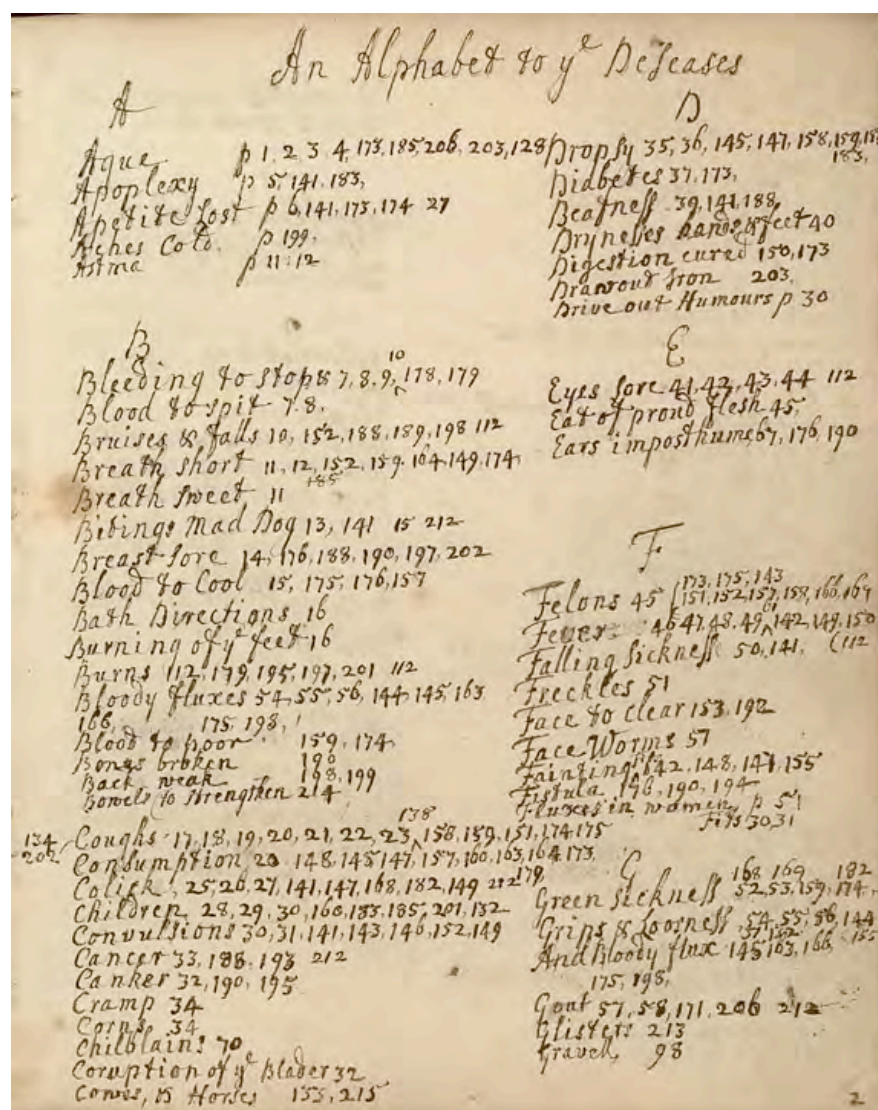 An Alphabet to yᵉ Deseases
A
Ague p 1, 2 3 4, 173, 185, 206, 203, 128
Apoplexy p 5, 141, 183,
Apetite Lost p 6, 141, 173, 174 27
Aches Cold. p 199.
Astma p 11: 12
B
Bleeding to stop & 7, 8, 9, 10 178, 179
Blood to spit 7. 8.
Bruises & falls 10, 152, 188, 189, 198 112
Breath short 11, 12, 152, 159, 164, 149, 174,
185
Breath sweet 11
Bitings Mad Dog 13, 141 15 212
Breast sore 14, 176, 188, 190, 197, 202
Blood to Cool 15, 175, 176, 157
Bath Directions 16
Burning of yᵉ feet 16
Burns 112, 179, 195, 197, 201 112
Bloody fluxes 54, 55, 56, 144, 145, 163
166, 175, 198,
Blood to poor 159, 174
Bones broken 190
Back weak 198, 199
Bowels to strengthen 214
138
134 Coughs 17, 18, 19, 20, 21, 22, 23, 158, 159, 151, 174 175
202 Consumption 20 148, 145 147, 157, 160, 163, 164 173,
Colick, 25, 26, 27, 141, 147, 168, 182, 149 212 179,
Children 28, 29, 30, 160, 183, 185, 201, 132
Convultions 30, 31, 141, 143, 146, 152, 149
Cancer 33, 188, 193 212
Canker 32, 190, 195
Cramp 34
Corns 34
Chilblains 70
Coruption of yᵉ Blader 32
Cowes, & Horses 155, 215
D
Dropsy 35, 36, 145, 147, 158, 159,
183,
Diabetes 37, 173,
Deafness 39, 141, 188,
Drynesses hands & feet 40
Digestion cured 150, 173
Draw out Iron 203.
Drive out Humours p 30
E
Eyes sore 41, 42, 43, 44 112
Eat of proud flesh 45,
Ears imposthume, 67, 176, 190
F
173, 175, 143
Felons 45 (151, 152, 157, 158, 166, 167
Fever 46 47, 48, 49, 61 142, 149, 150
Falling Sickness 50, 141, (112
Freckles 51
Face to clear 153, 192
Face Worms 57
Faintings 142, 148, 147, 155
Fistula 176, 190, 194
Fluxes in women, p 57
Fits 30, 31
G
168 169 182
Green Sickness 52, 53, 159, 174,
Grips & Loosness, 54, 55, 56, 144
And Bloody flux 145 163, 166, 155
175, 198,
Gout 57, 58, 171, 206 212
Glisters 213
Gravell, 98
2